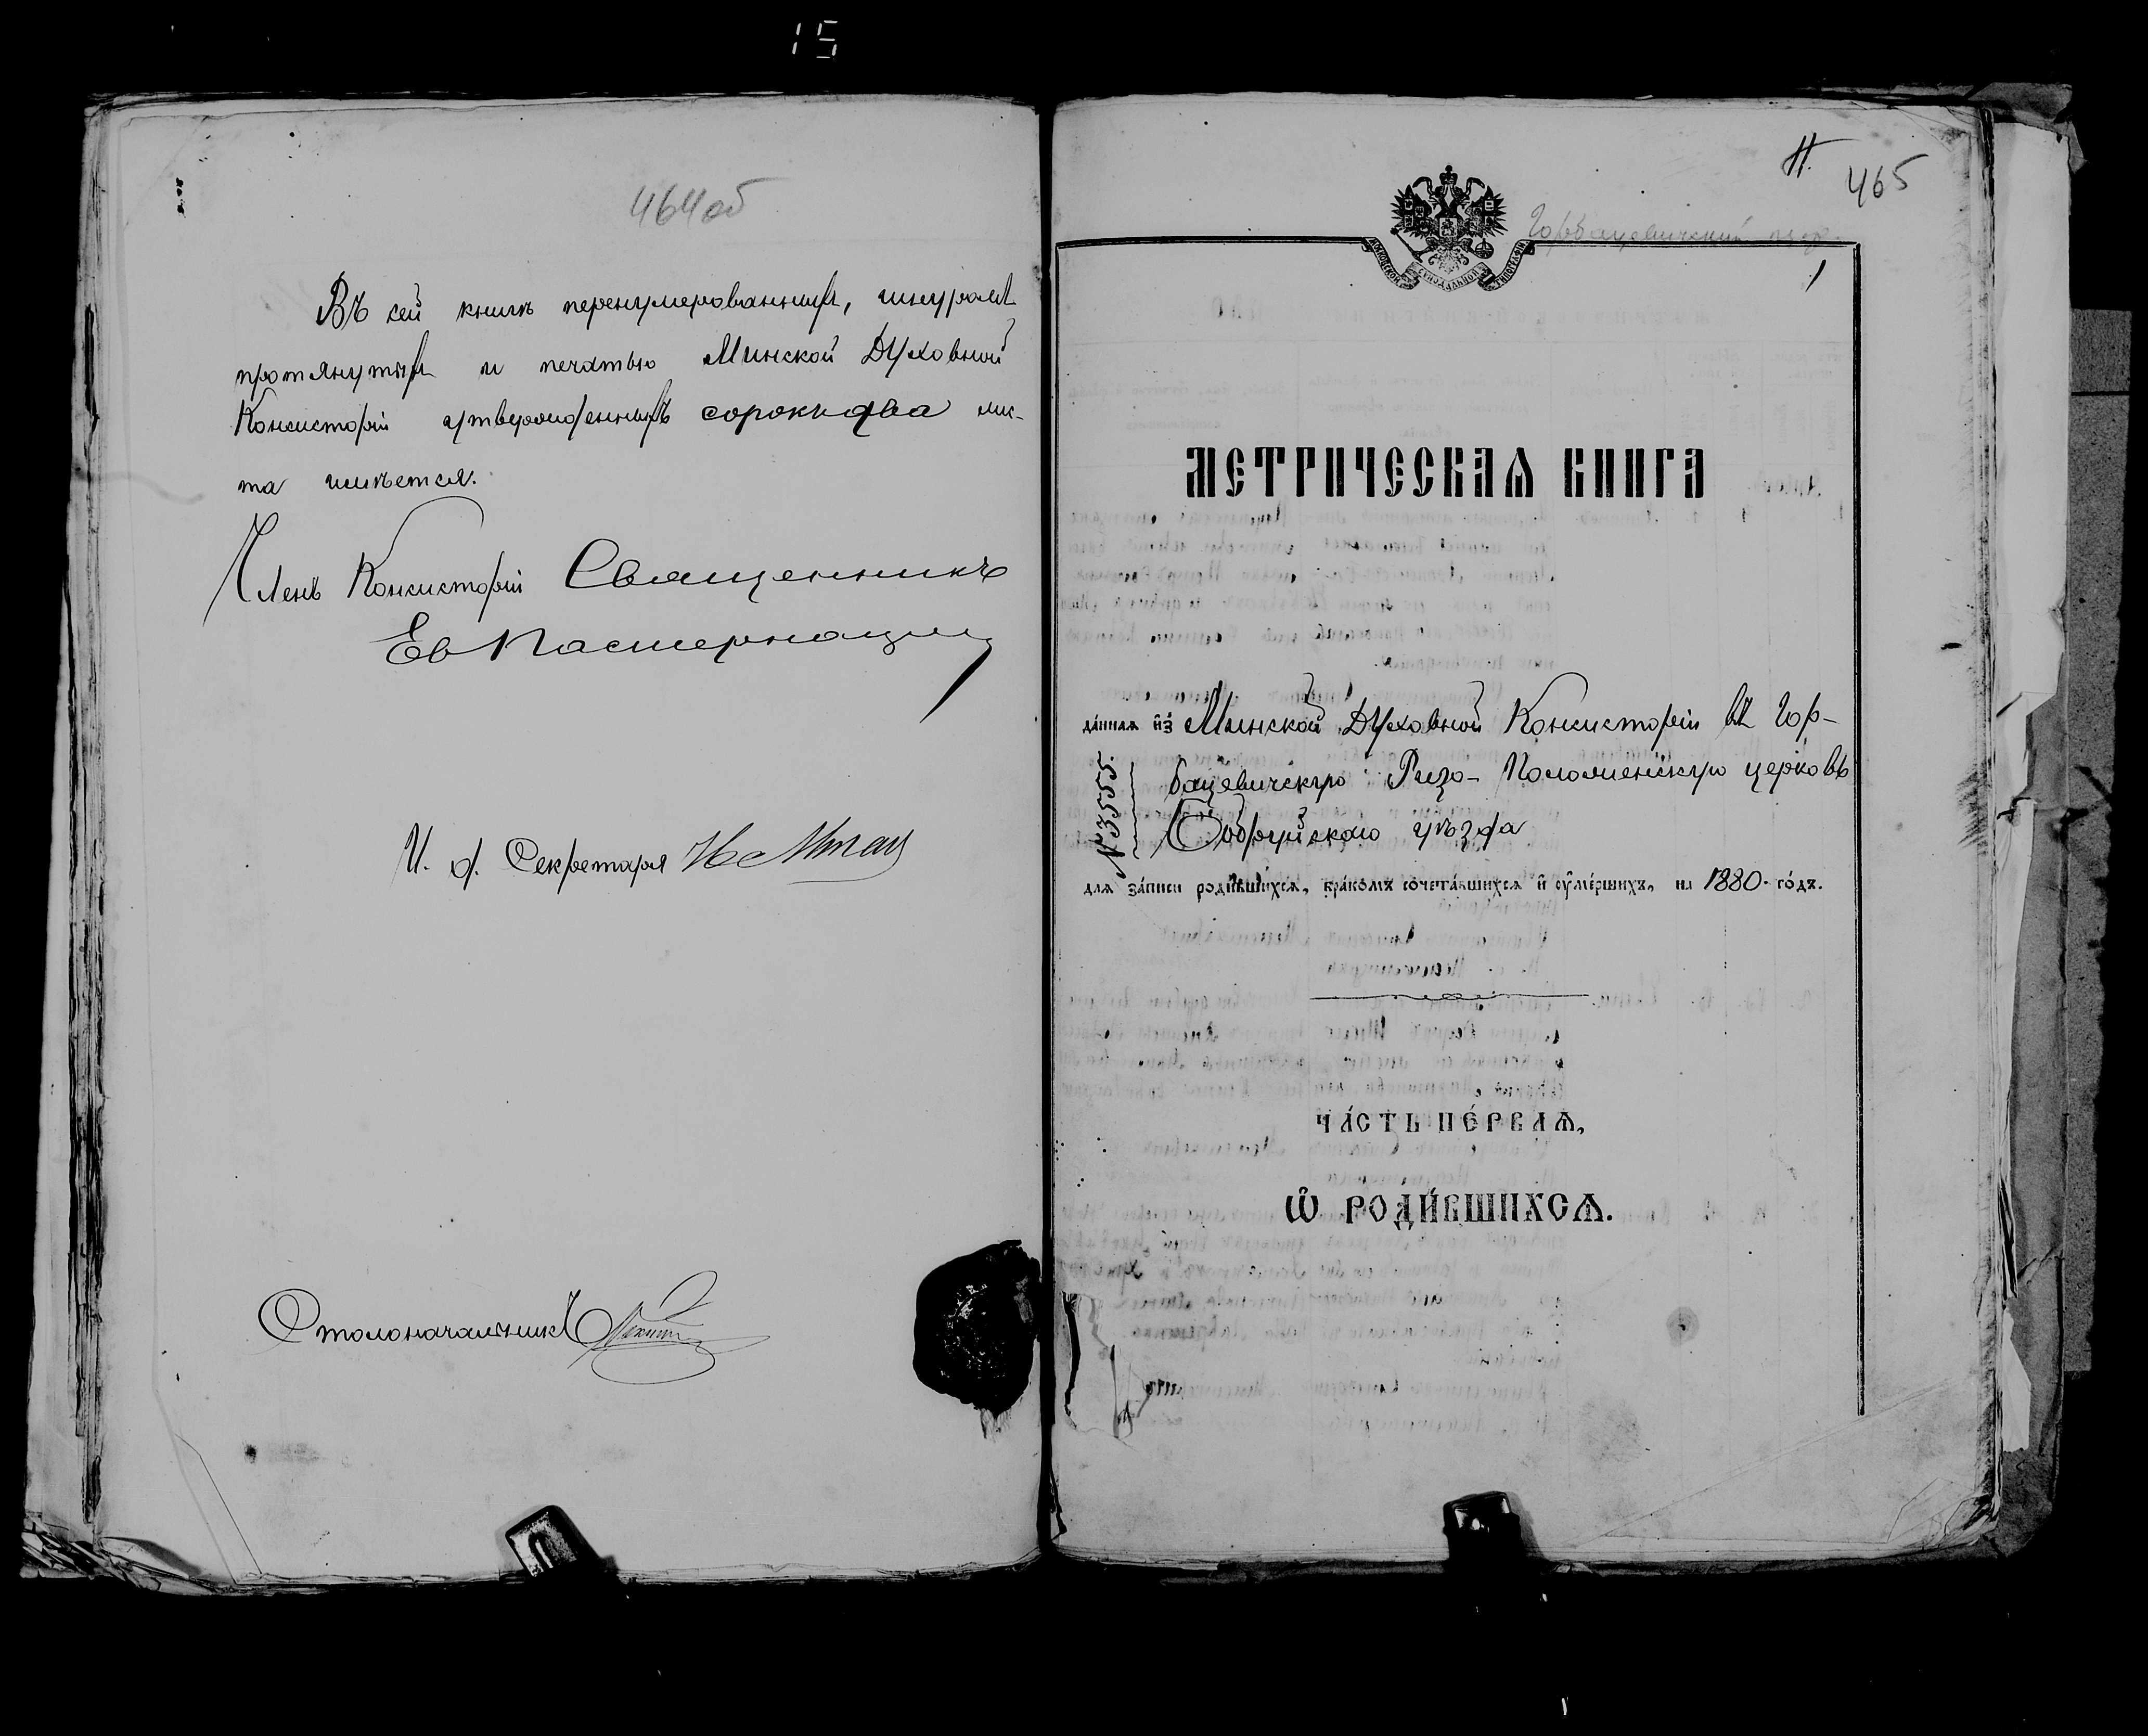 15
464об
Въ сей книгѣ перенумерованныхъ, шнуромъ
протянутыхъ и печатью Минской Духовной
Консисторіи утвержденныхъ сорокъ два лис-
та имѣется.
Членъ Консисторіи Священникъ
Ев Пастернацкій
И. д. Секретаря
Столоначальникъ
465
Горбацевичский
1
МОСКОВСКОЙ СѴНОДАЛЬНОЙ ТИПОГРАФІИ
МЕТРИЧЕСКАѦ КНИГА
да́ннаѧ и҆з̾ Минской Духовной Консисторіи въ Гор-
бацевичскую Ризо-Положенскую церковь
Бобруйскаго уѣзда
№ 3353.
длѧ за́писи роди́вшихсѧ, бра́комъ сочета́вшихсѧ и҆ ᲂу҆ме́ршихъ, на 1880 го́дъ.
ЧА́СТЬ ПЕ́РВАѦ,
Ѽ РОДИ́ВШИХСѦ.